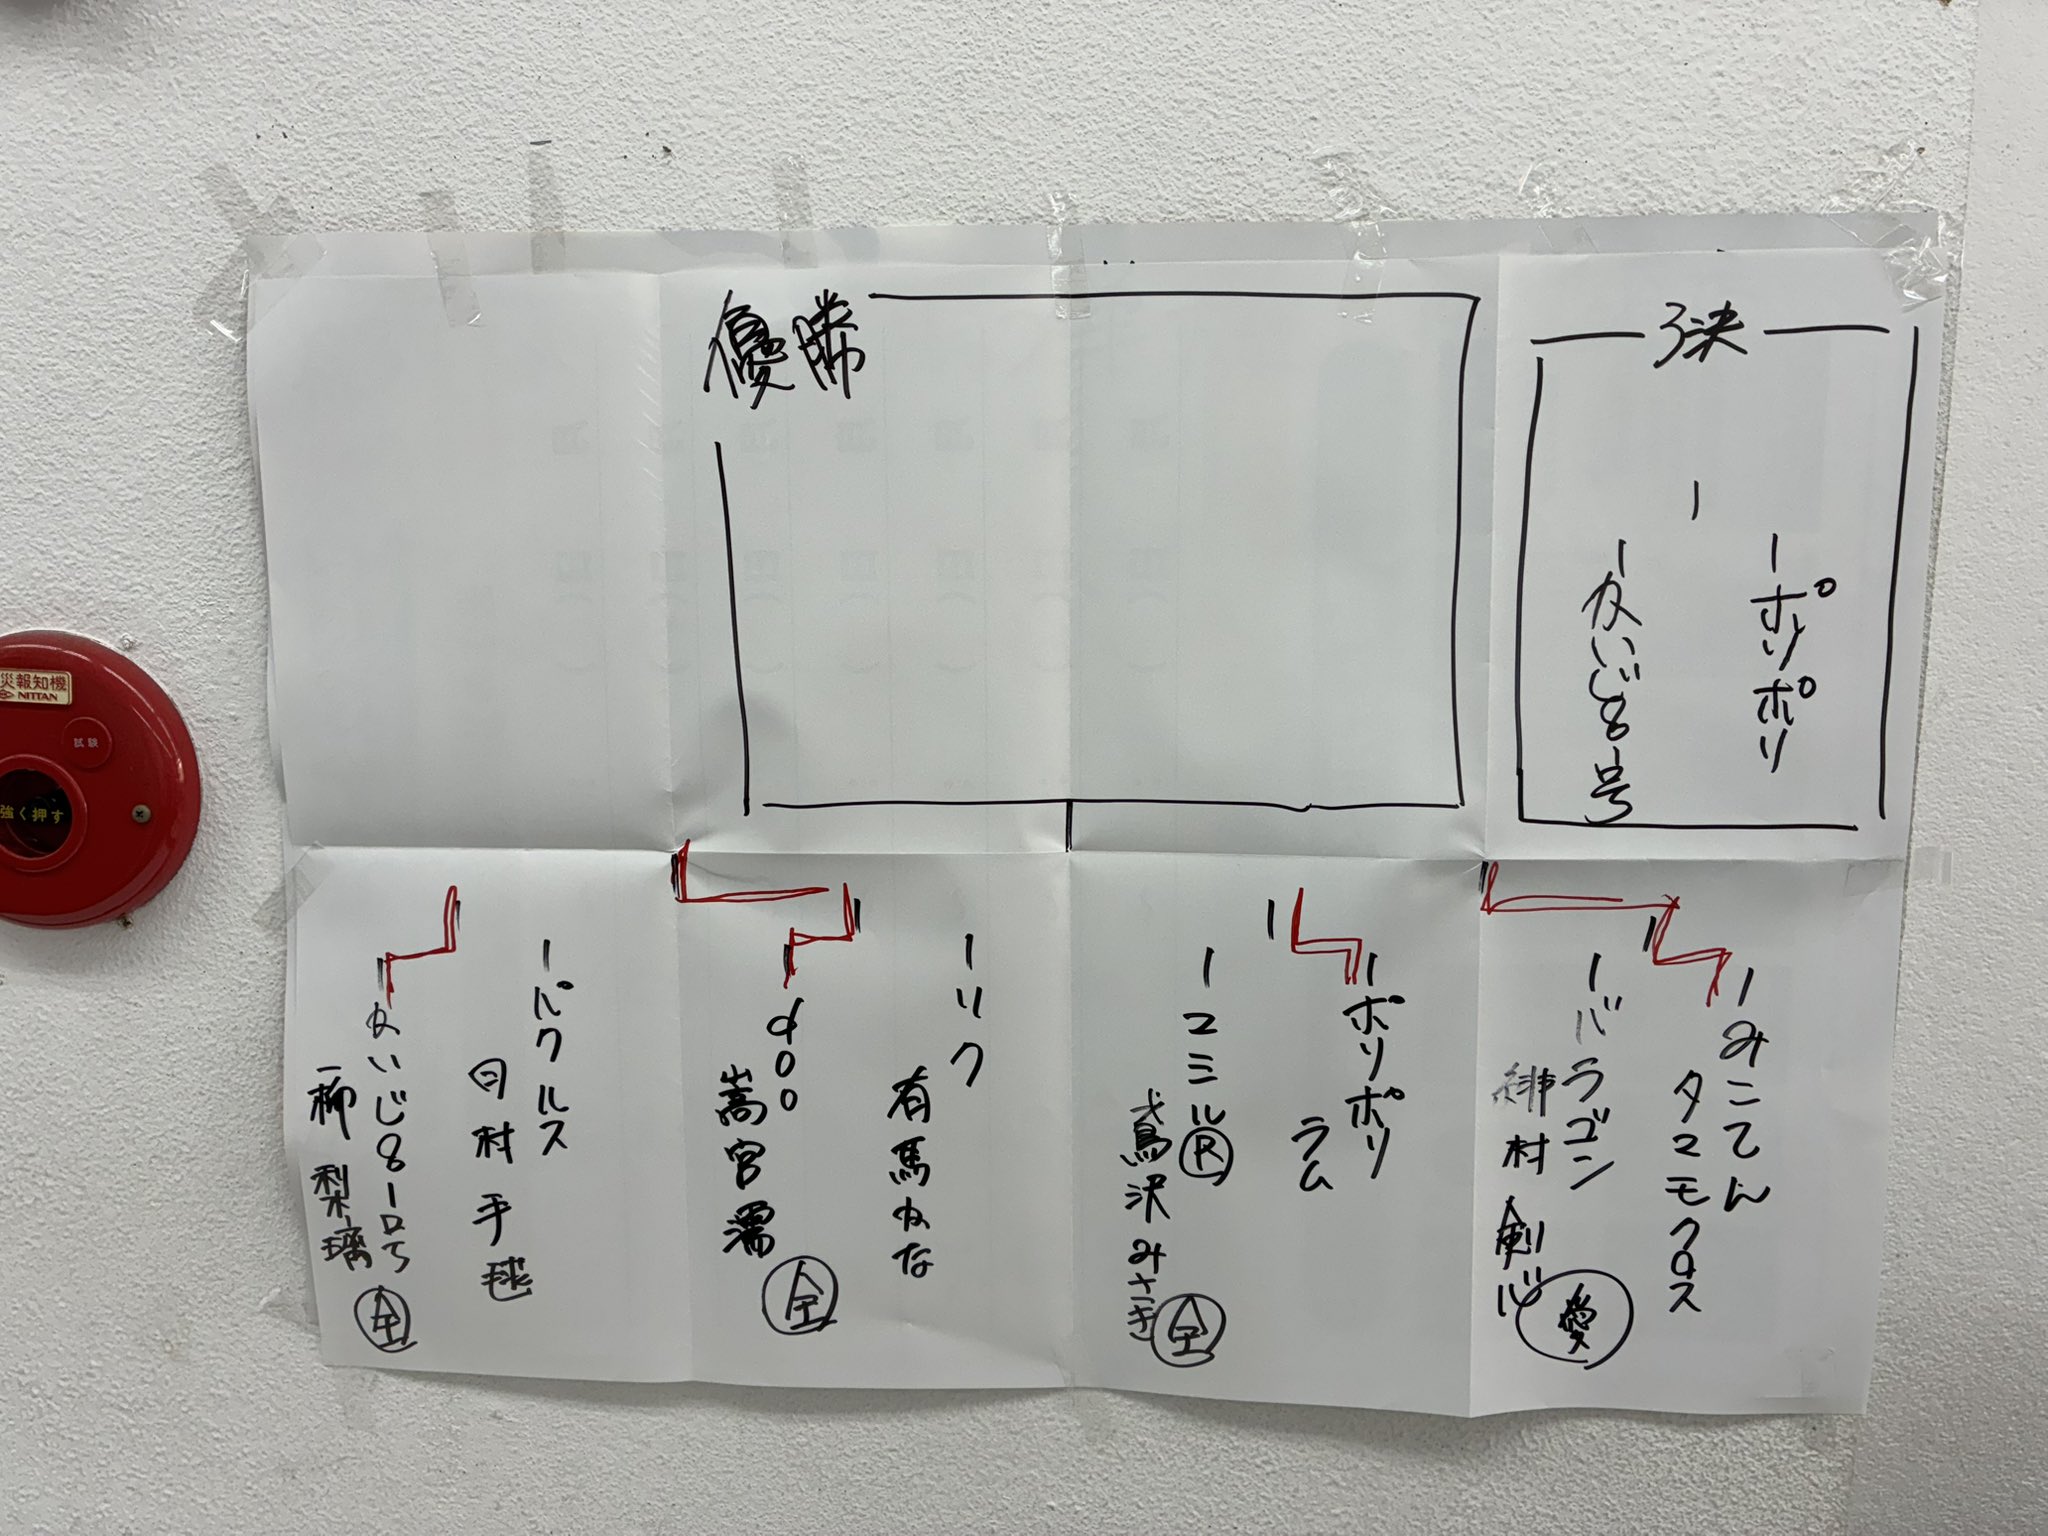 優勝
3決
ポリポリ
かいじ8号
みこてん
タマモクロス
バラゴン
緋村剣心
愛
ポリポリ
ラム
マミルⓇ
鳶沢みさき
全
リク
有馬かな
doo
嵩宮澪
全
パクルス
白村手毬
かいじ8号
一柳梨璃
全
災報知機
NITTAN
試験
強く押す